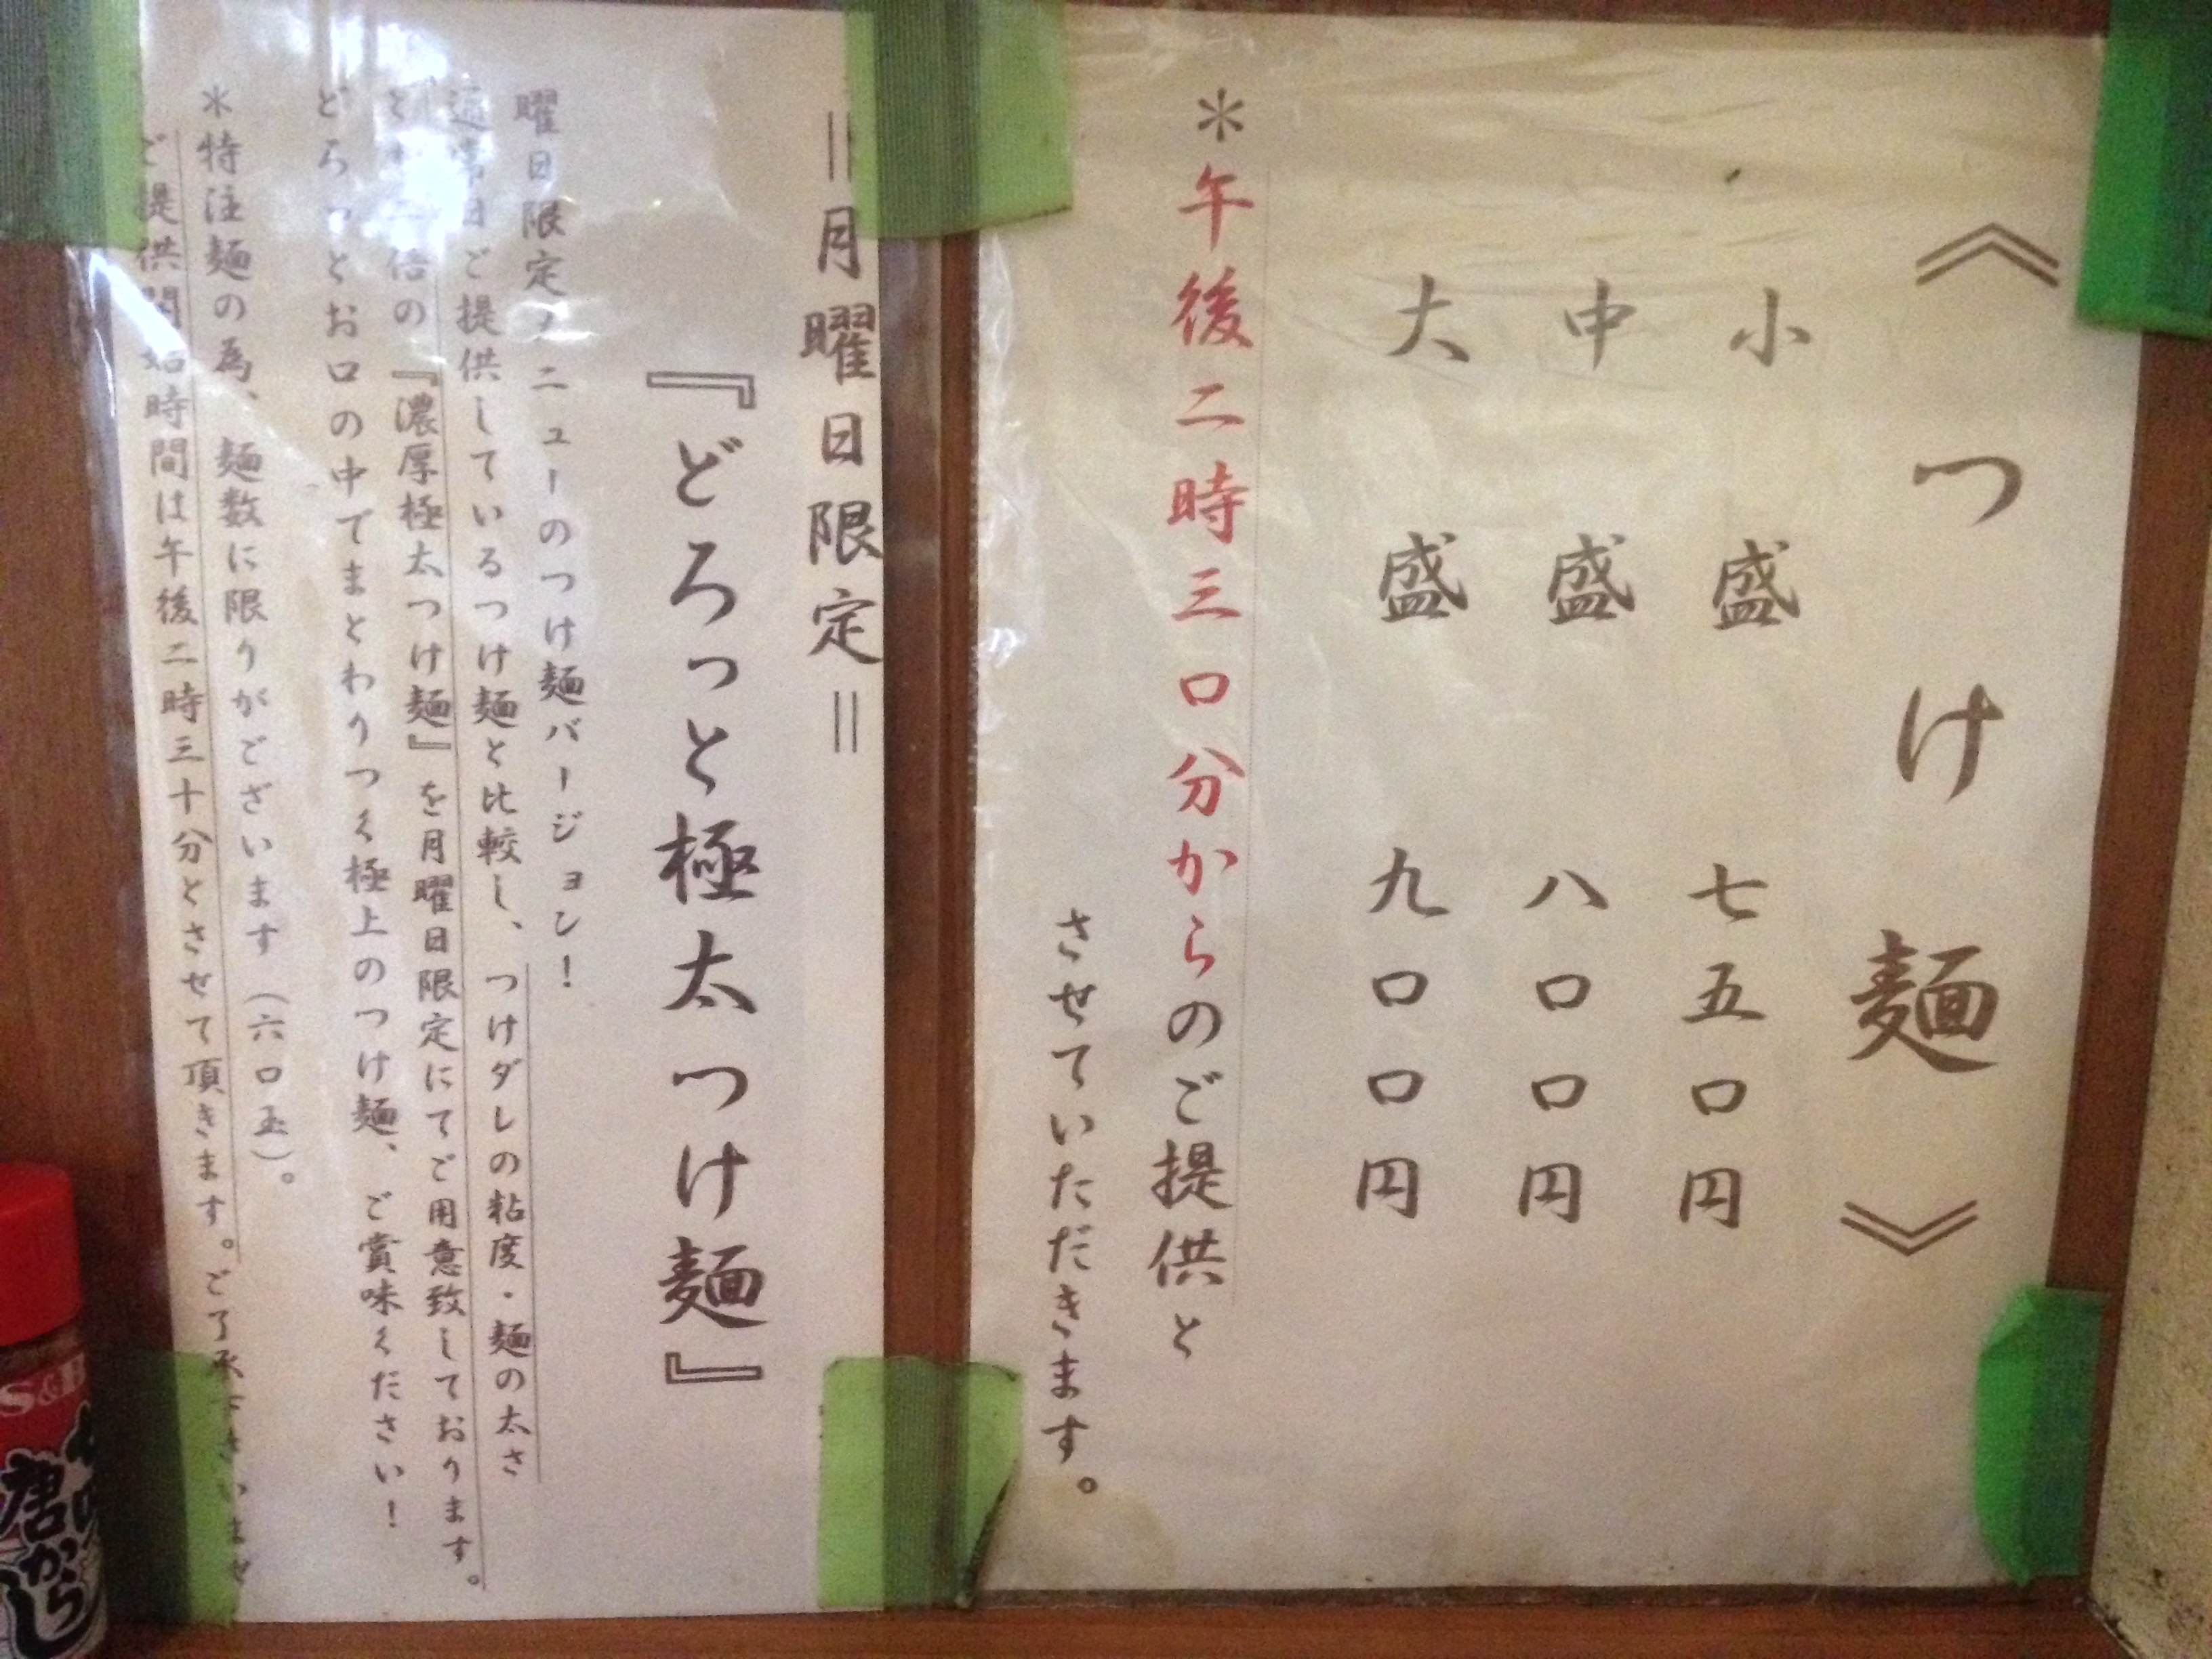 《つけ麺》
小盛 七五〇円
中盛 八〇〇円
大盛 九〇〇円
＊午後二時三〇分からのご提供と
させていただきます。
＝月曜日限定＝
『どろっと極太つけ麺』
曜日限定メニューのつけ麺バージョン！
通常日ご提供しているつけ麺と比較し、つけダレの粘度・麺の太さ
倍の『濃厚極太つけ麺』を月曜日限定にてご用意致しております。
どろっとお口の中でまとわりつく極上のつけ麺、ご賞味ください！
＊特注麺の為、麺数に限りがございます（六〇玉）。
ご提供開始時間は午後二時三十分とさせて頂きます。ご了承下さいませ
S&B
唐からし